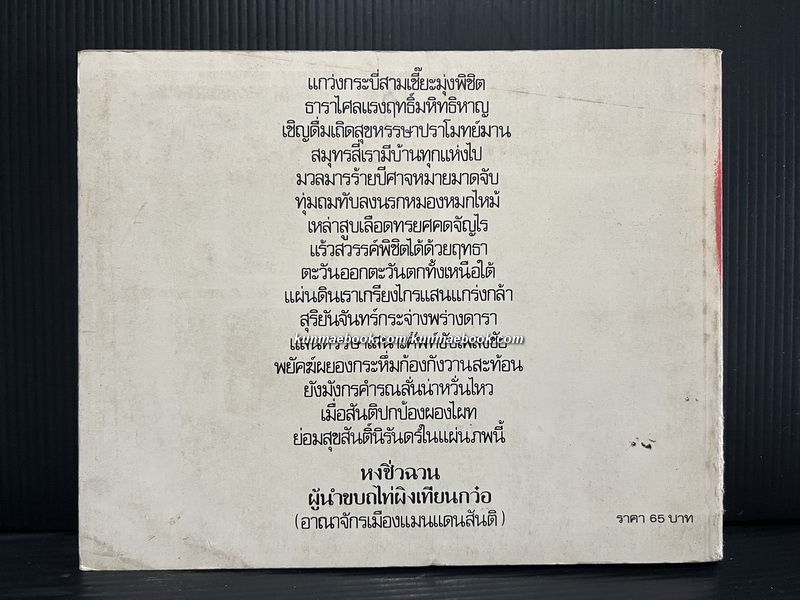 แกว่งกระบี่สามเชี๊ยะมุ่งพิชิต
ธาราไศลแรงฤทธิ์มหิทธิหาญ
เชิญดื่มเถิดสุขหรรษาปราโมทย์มาน
สมุทรสี่เรามีบ้านทุกแห่งไป
มวลมารร้ายปีศาจหมายมาดจับ
ทุ่มถมทับลงนรกหมองหมกไหม้
เหล่าสูบเลือดทรยศคดจัญไร
แร้วสวรรค์พิชิตได้ด้วยฤทธา
ตะวันออกตะวันตกทั้งเหนือใต้
แผ่นดินเราเกรียงไกรแสนแกร่งกล้า
สุริยันจันทร์กระจ่างพร่างดารา
kunmaebook.com/kunmaebook.com
พยัคฆ์ผยองกระหึ่มก้องกังวานสะท้อน
ยังมังกรคำรณลั่นน่าหวั่นไหว
เมื่อสันติปกป้องผองไผท
ย่อมสุขสันติ์นิรันดร์ในแผ่นภพนี้
หงซิ่วฉวน
ผู้นำขบถไท่ผิงเทียนกว๋อ
(อาณาจักรเมืองแมนแดนสันติ)
ราคา 65 บาท